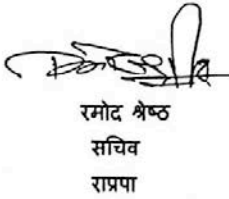 रमोद श्रेष्ठ
सचिव
राप्रपा